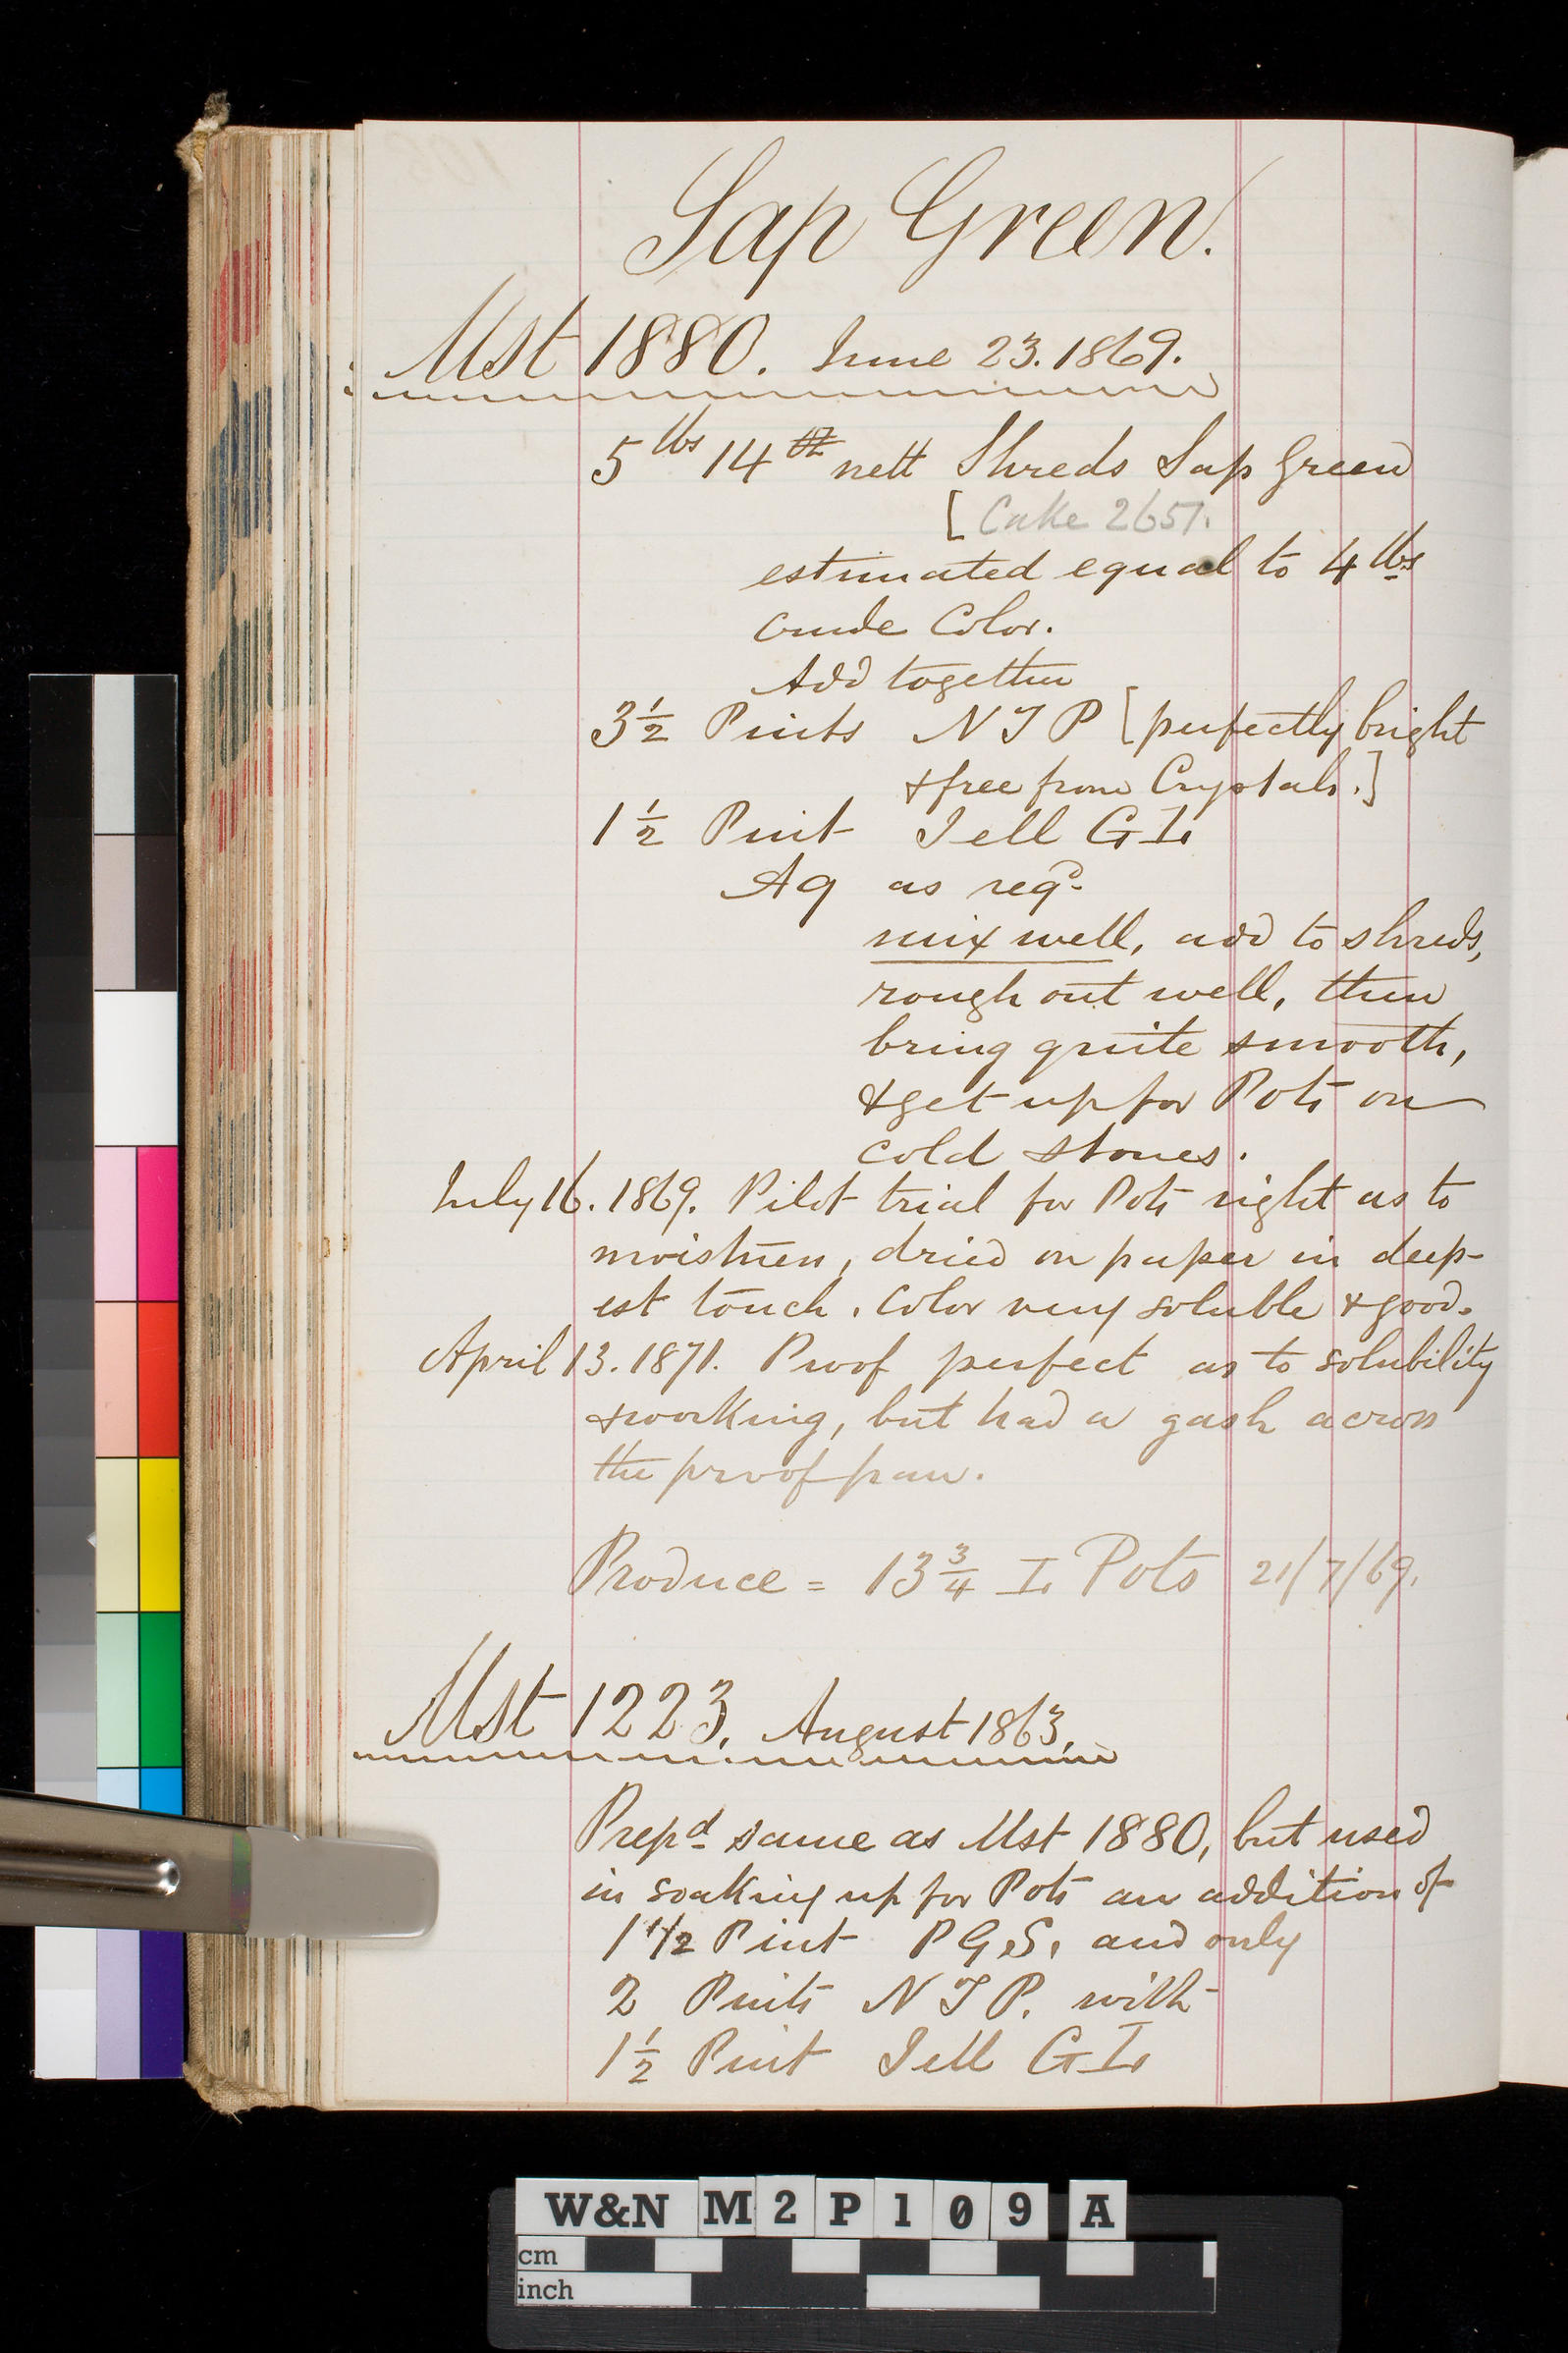 Sap Green.
Mst 1880. June 23. 1869.
5 lbs 14 oz nett Shreds Sap Green
[Cake 2651.
estimated equal to 4 lbs
crude Color.
Add together
3 1/2 Pints N J P [perfectly bright
& free from Crystals.]
1 1/2 Pint Jell G I.
Aq as reqd.
mix well, add to shreds,
rough out well, then
bring quite smooth,
& get up for Pots on
cold stones.
July 16. 1869. Pilot trial for Pots right as to
moisture, dried on paper in deep-
est touch. Color very soluble & good.
April 13. 1871. Proof perfect as to solubility
& working, but had a gash across
the proof pan.
Produce = 13 3/4 I. Pots 21/7/69.
Mst 1223. August 1863.
Prepd same as Mst 1880, but used
in soaking up for Pots an addition of
1 1/2 Pint P G S. and only
2 Pints N J P. with
1 1/2 Pint Jell G I.
W&N M2P109A
cm
inch